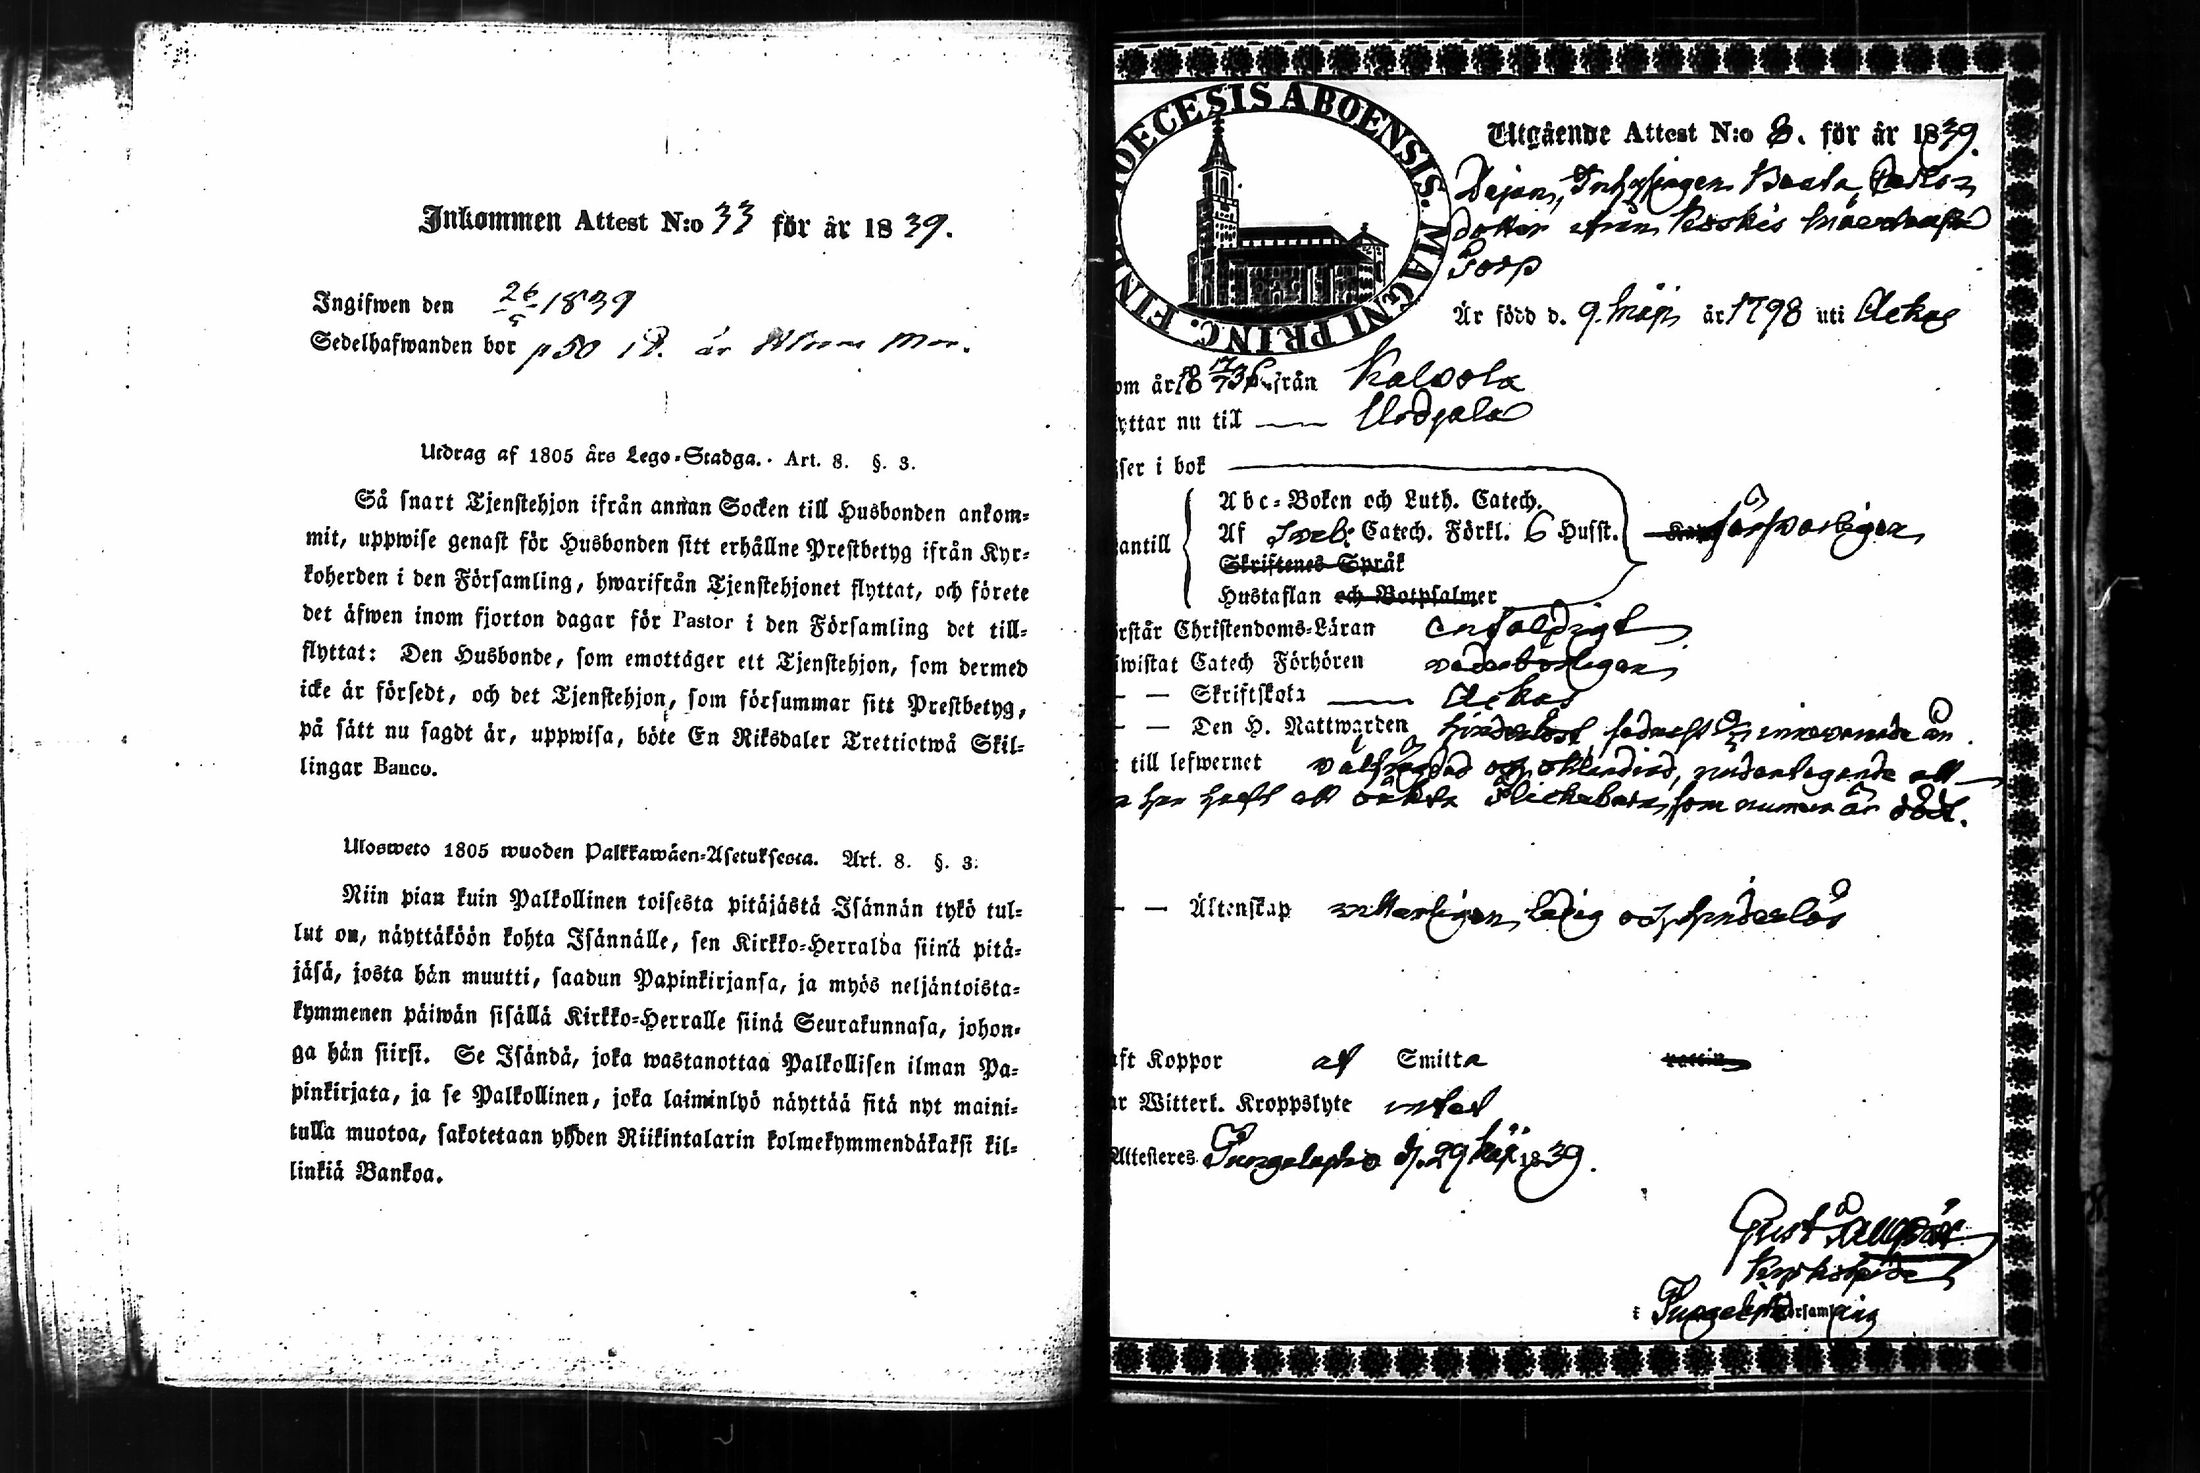 Inkommen Attest N:o 33 för år 1839.
Ingifwen den 26/5 1839
Sedelhafwanden bor p 50
Utdrag af 1805 års Lego-Stadga. Art. 8. §. 3.
Så snart Tjenstehjon ifrån annan Socken till Husbonden ankom-
mit, uppwise genast för Husbonden sitt erhållne Prestbetyg ifrån Kyr-
koherden i den Församling, hwarifrån Tjenstehjonet flyttat, och förete
det äfwen inom fjorton dagar för Pastor i den Församling det till-
flyttat: Den Husbonde, som emottager ett Tjenstehjon, som dermed
icke är försedt, och det Tjenstehjon, som försummar sitt Prestbetyg,
på sätt nu sagdt är, uppwisa, böte En Riksdaler Trettiotwå Skil-
lingar Banco.
Ulosweto 1805 wuoden Palkkawäen-Asetuksesta. Art. 8. §. 3.
Niin pian kuin Palkollinen toisesta pitäjästä Isännän tykö tul-
lut on, näyttäköön kohta Isännälle, sen Kirkko-Herralda siinä pitä-
jäsä, josta hän muutti, saadun Papinkirjansa, ja myös neljäntoista-
kymmenen päiwän sisällä Kirkko-Herralle siinä Seurakunnasa, johon-
ga hän siirsi. Se Isändä, joka wastanottaa Palkollisen ilman Pa-
pinkirjata, ja se Palkollinen, joka laiminlyö näyttää sitä nyt maini-
tulla muotoa, sakotetaan yhden Riikintalarin kolmekymmendäkaksi kil-
linkiä Bankoa.
DIOECESIS ABOENSIS. MAGNI PRINC. FINL.
Utgående Attest N:o 8. för år 1839.
Pigan, Inhysingen Beata
dotter ifrån
Torp
Är född d. 9. Maji år 1798 uti Ackas
om år 18 17/7 36 från Kalvola
yttar nu till Urdjala
ser i bok
antill
Abc-Boken och Luth. Catech.
Af Sveb: Catech. Förkl. 6 Husst. försvarligen
Skriftenes Språk
Hustaflan och Botpsalmer
örstår Christendoms-Läran enfaldigt
iwistat Catech Förhören vederbörligen
— — Skriftskola Ackas
— — Den H. Nattwarden hinderlöst sednast innevarande år.
till lefwernet välfrägdad och oklandrad, undantagande att
hon haft ett oäkta flickebarn, som numer är död.
— — Äktenskap vitterligen ledig och hinderlös
aft Koppor af Smitta
ar Witterl. Kroppslyte intet
Attesteras Tyngelupho d. 29 Maji 1839.
Gust.
Kyrkoherde
i församling